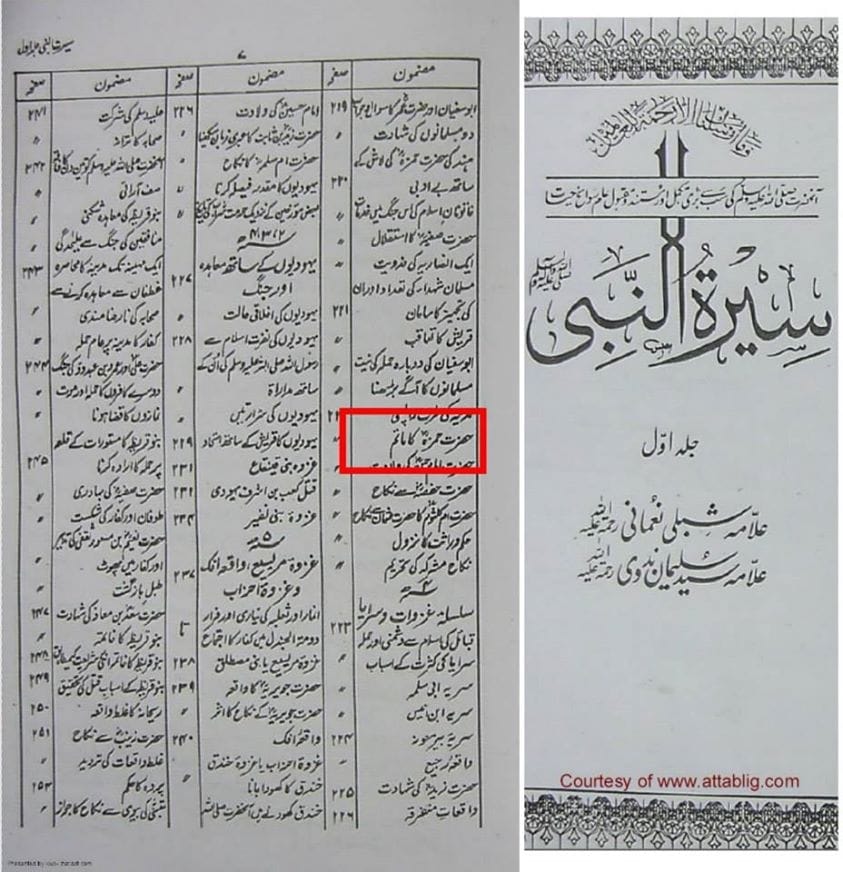 سیرت النبی جلد اول
۷
مضمون صفحہ
ابوسفیان اور حضرت عمرؓ کا سوال و جواب ۲۱۹
دو مسلمانوں کی شہادت "
ہند کی حضرت حمزہؓ کی لاش کے
ساتھ بے ادبی ۲۲۰
خاتونان اسلام کی اس جنگ میں خدمات "
حضرت صفیہؓ کا استقلال "
ایک انصاریہ کی فدویت "
مسلمان شہداء کی تعداد اور ان
کی تجہیز کا سامان ۲۲۱
قریش کا تعاقب "
ابوسفیان کی دوبارہ حملہ کی نیت
مسلمانوں کا آگے بڑھنا "
مدینہ کی طرف واپسی
حضرت حمزہؓ کا ماتم "
حضرت کی ولادت
حضرت حفصہؓ سے نکاح "
حضرت ام کلثومؓ کا حضرت عثمانؓ سے نکاح "
حکم وراثت کا نزول "
نکاح مشرکہ کی تحریم "
۴ھ
سلسلہ غزوات و سرایا ۲۲۳
قبائل کی اسلام سے دشمنی اور حملہ
سرایا کی کثرت کے اسباب "
سریہ ابی سلمہ "
سریہ ابن انیس "
سریہ بیر معونہ ۲۲۴
واقعہ رجیع "
حضرت زیدؓ کی شہادت ۲۲۵
واقعات متفرقہ ۲۲۶
مضمون صفحہ
امام حسینؓ کی ولادت ۲۲۶
حضرت زیدؓ بن ثابت کا عبری زبان سیکھنا "
حضرت ام سلمہؓ کا نکاح "
یہودیوں کا مقدمہ فیصل کرنا "
یہودیوں کے ساتھ معاہدہ
اور جنگ ۲۲۷
یہودیوں کی اخلاقی حالت "
یہودیوں کی نفرت اسلام سے ۲۲۸
رسول اللہ صلی اللہ علیہ وسلم کی ان کے
ساتھ مداراة "
یہودیوں کی شرارتیں "
یہودیوں کا قریش کے ساتھ اتحاد ۲۲۹
غزوہ بنی قینقاع ۲۳۱
قتل کعب بن اشرف یہودی ۲۳۱
غزوہ بنی نضیر ۲۳۴
۵ھ
غزوہ مریسیع، واقعہ افک
وغزوۂ احزاب ۲۳۷
انمار اور ثعلبہ کی تیاری اور فرار
دومۃ الجندل میں کفار کا اجتماع
غزوۂ مریسیع یا بنی مصطلق ۲۳۸
حضرت جویریہؓ کا واقعہ ۲۳۹
حضرت جویریہؓ کے نکاح کا اثر "
واقعۂ افک ۲۴۰
غزوۂ احزاب یا غزوۂ خندق "
خندق کا کھودا جانا "
خندق کھودنے میں آنحضرت صلی اللہ
مضمون صفحہ
علیہ وسلم کی شرکت ۲۴۱
صحابہ کا ترانہ "
آنحضرت صلی اللہ علیہ وسلم کو تین دن کا فاقہ ۲۴۲
صف آرائی "
بنو قریظہ کی معاہدہ شکنی "
منافقین کی جنگ سے علیحدگی "
ایک مہینہ تک مدینہ کا محاصرہ ۲۴۳
غطفان سے معاہدہ کرنے سے
صحابہ کی نارضامندی "
کفار کا مدینہ پر عام حملہ "
حضرت علیؓ اور عمرو بن عبدود کی جنگ ۲۴۴
دوسرے کافروں کا حملہ اور موت "
نمازوں کا قضا ہونا "
بنو قریظہ کا مستورات کے قلعہ
پر حملہ کا ارادہ کرنا ۲۴۵
حضرت صفیہؓ کی بہادری "
طوفان اور کفار کی شکست "
حضرت نعیمؓ بن مسعود ثقفی کی تدبیر
اور کفار میں پھوٹ "
طبل بازگشت "
حضرت سعدؓ بن معاذ کی شہادت ۲۴۷
بنو قریظہ کا خاتمہ "
بنو قریظہ کا خاتمہ انکی شریعت کے مطابق ۲۴۸
بنو قریظہ کے اسباب قتل کی تحقیق ۲۴۹
ریحانہ کا غلط واقعہ ۲۵۰
حضرت زینبؓ سے نکاح ۲۵۱
غلط واقعات کی تردید "
پردہ کا حکم ۲۵۳
متبنّٰی کی بیوی سے نکاح کا جواز "
Presented by
وما ارسلناک الا رحمة للعالمین
سیرۃ النبی
صلی اللہ علیہ وسلم
جلد اوّل
علامہ شبلی نعمانی رحمۃ اللہ علیہ
علامہ سید سلیمان ندوی رحمۃ اللہ علیہ
Courtesy of www.attablig.com